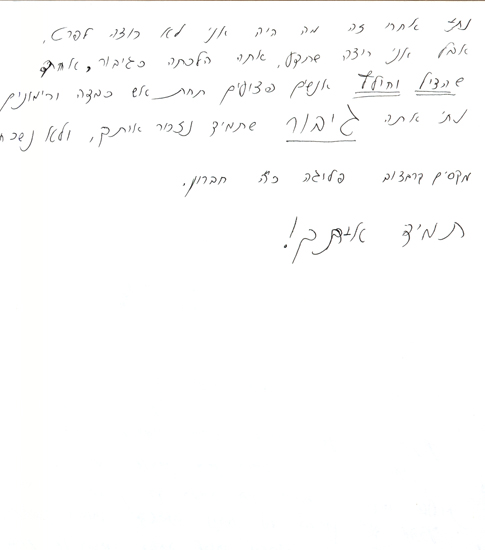 נתי אחרי זה מה היה אני לא רוצה לפרט,
אבל אני רוצה שתדע, אתה הלכתה כגיבור, אחד
שהציל וחילץ אנשים פצועים תחת אש כבדה ורימונים
נתי אתה גיבור שתמיד נזכור אותך, ולא נשכח
מקסים פלוגה חברון.
תמיד איתך!